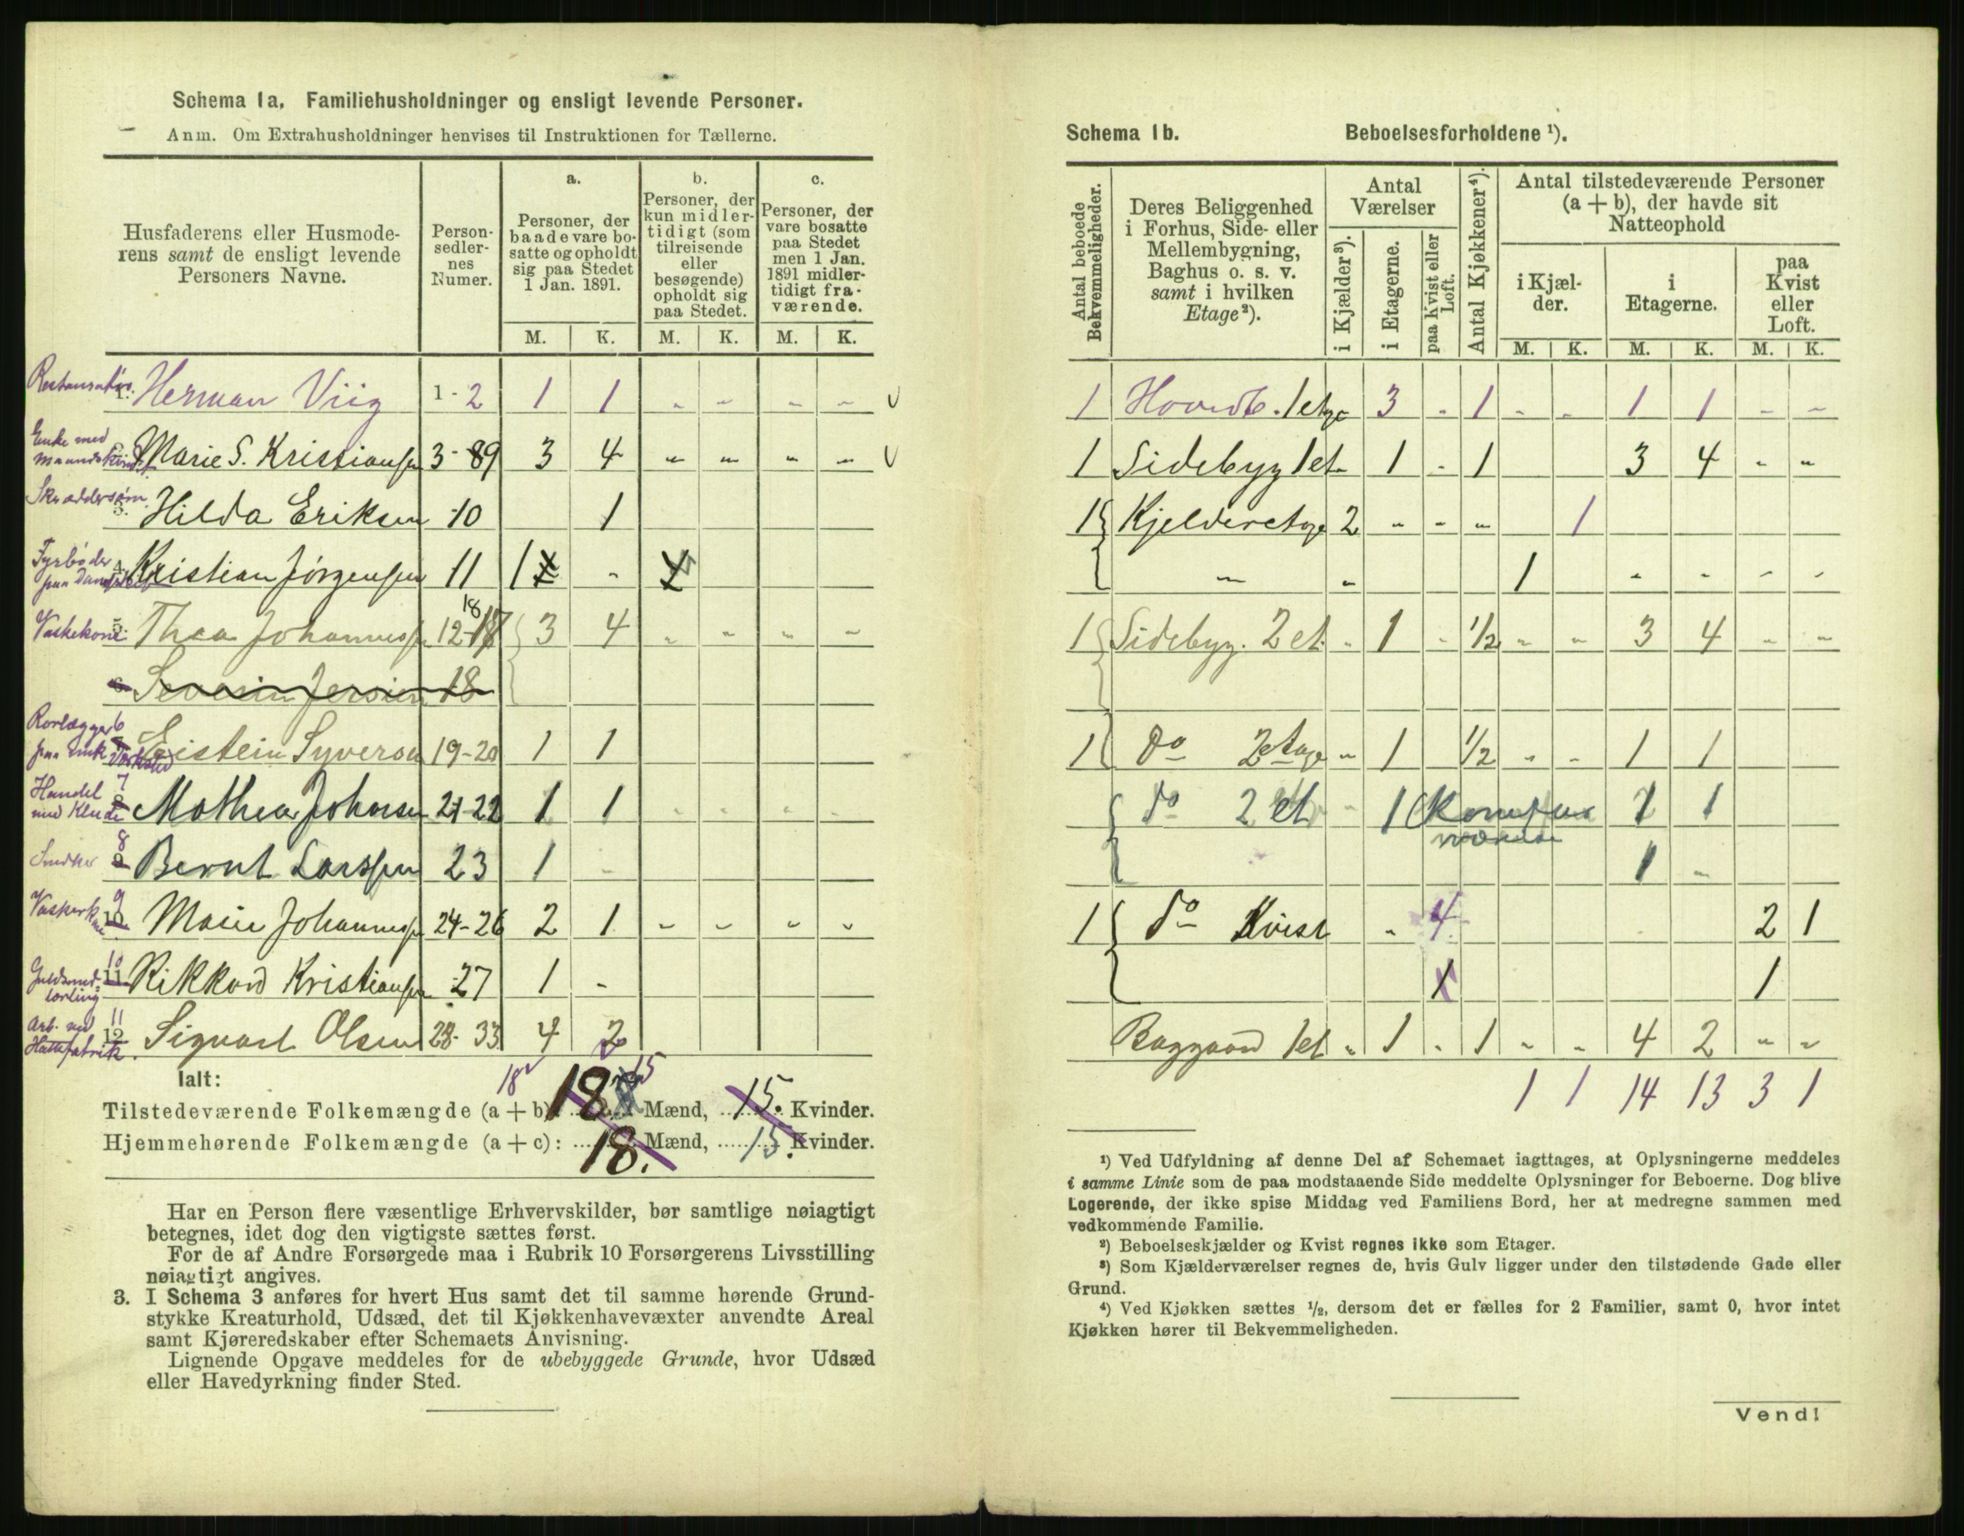 Schema 1a. Familiehusholdninger og ensligt levende Personer.
Anm. Om Extrahusholdninger henvises til Instruktionen for Tællerne.
Husfaderens eller Husmoderens samt de ensligt levende Personers Navne.
Personsedlernes Numer.
a.
Personer, der baade vare bosatte og opholdt sig paa Stedet 1 Jan. 1891.
b.
Personer, der kun midlertidigt (som tilreisende eller besøgende) opholdt sig paa Stedet.
c.
Personer, der vare bosatte paa Stedet men 1 Jan. 1891 midlertidigt fraværende.
M. K. M. K. M. K.
1. Herman Viig 1-2 1 1 „ „ „ „ v
Enke med
Marie S. Kristiansen 3-9 3 4 „ „ „ „ v
3. Hilda Eriksen 10 1
Fyrbøder
4. Kristian Jørgensen 11 1 „
Vaskekone 5. Thea Johannessen 12-18 3 4 „ „ „ „
6. Severin Jensen 18
Rørlægger 6
Eistein Syversen 19-20 1 1
Handel 7
med Klude 8 Mathea Johnsen 21-22 1 1 „ „ „ „
8
9 Bernt Larssen 23 1 „
9
10 Marie Johannessen 24-26 2 1 „ „ „ „
Guldsmed- 10
lærling 11 Rikkard Kristiansen 27 1 -
Arb. ved 11
Hattefabrik. 12 Sigvart Olsen 28-33 4 2
Ialt:
18 15
Tilstedeværende Folkemængde (a + b): 18 Mænd, 15. Kvinder.
Hjemmehørende Folkemængde (a + c): 18. Mænd, 15. Kvinder.
Har en Person flere væsentlige Erhvervskilder, bør samtlige nøiagtigt
betegnes, idet dog den vigtigste sættes først.
For de af Andre Forsørgede maa i Rubrik 10 Forsørgerens Livsstilling
nøiagtigt angives.
3. I Schema 3 anføres for hvert Hus samt det til samme hørende Grund-
stykke Kreaturhold, Udsæd, det til Kjøkkenhavevæxter anvendte Areal
samt Kjøreredskaber efter Schemaets Anvisning.
Lignende Opgave meddeles for de ubebyggede Grunde, hvor Udsæd
eller Havedyrkning finder Sted.
Schema 1b. Beboelsesforholdene ¹).
Antal beboede Bekvemmeligheder.
Deres Beliggenhed i Forhus, Side- eller Mellembygning, Baghus o. s. v. samt i hvilken Etage²).
Antal Værelser
i Kjælder³).
i Etagerne.
paa Kvist eller Loft.
Antal Kjøkkener⁴).
Antal tilstedeværende Personer (a + b), der havde sit Natteophold
i Kjælder.
i Etagerne.
paa Kvist eller Loft.
M. K. M. K. M. K.
1 Hovedb. 1 etage 3 „ 1 „ „ 1 1 „ „
1 Sidebyg 1 et „ 1 „ 1 3 4 „ „
1 Kjelderetage 2 „ „ „ 1
„ „ 1 „ „ „ „
1 Sidebyg. 2 et. „ 1 „ 1/2 „ „ 3 4 „ „
1 do 2 etage „ 1 1/2 „ „ 1 1
do 2 et „ 1 1 1
1 „
1 do Kvist „ 4 2 1
1 1
Baggaard 1 et „ 1 „ 1 „ „ 4 2 „ „
1 1 14 13 3 1
¹) Ved Udfyldning af denne Del af Schemaet iagttages, at Oplysningerne meddeles
i samme Linie som de paa modstaaende Side meddelte Oplysninger for Beboerne. Dog blive
Logerende, der ikke spise Middag ved Familiens Bord, her at medregne sammen med
vedkommende Familie.
²) Beboelseskjælder og Kvist regnes ikke som Etager.
³) Som Kjælderværelser regnes de, hvis Gulv ligger under den tilstødende Gade eller
Grund.
⁴) Ved Kjøkken sættes ¹/₂, dersom det er fælles for 2 Familier, samt 0, hvor intet
Kjøkken hører til Bekvemmeligheden.
Vend!